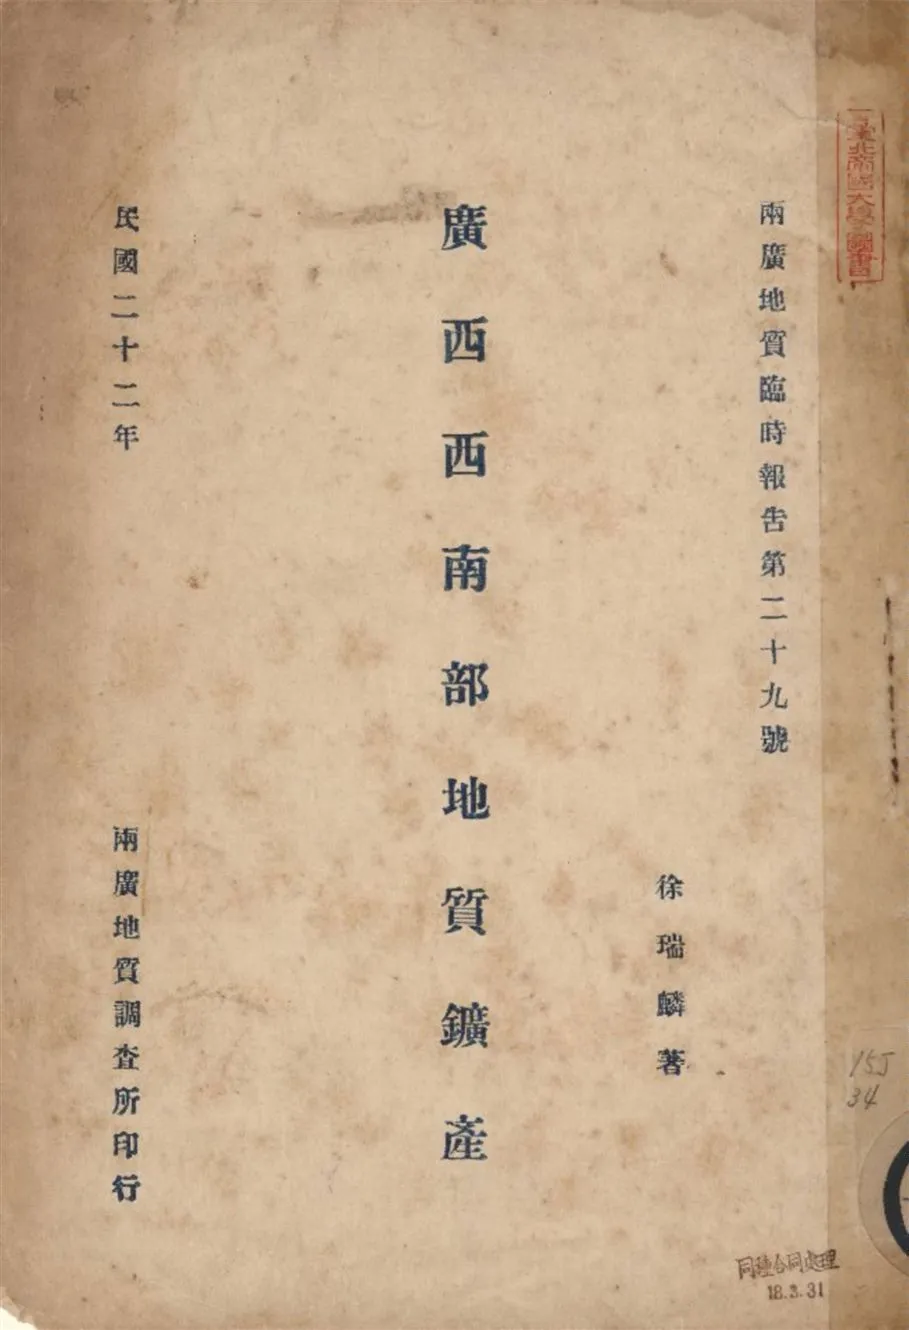 臺北帝國大學圖書
兩廣地質臨時報告第二十九號
徐瑞麟著
廣西西南部地質鑛產
民國二十二年
兩廣地質調查所印行
15J
34
同種合同処理
18.3.31